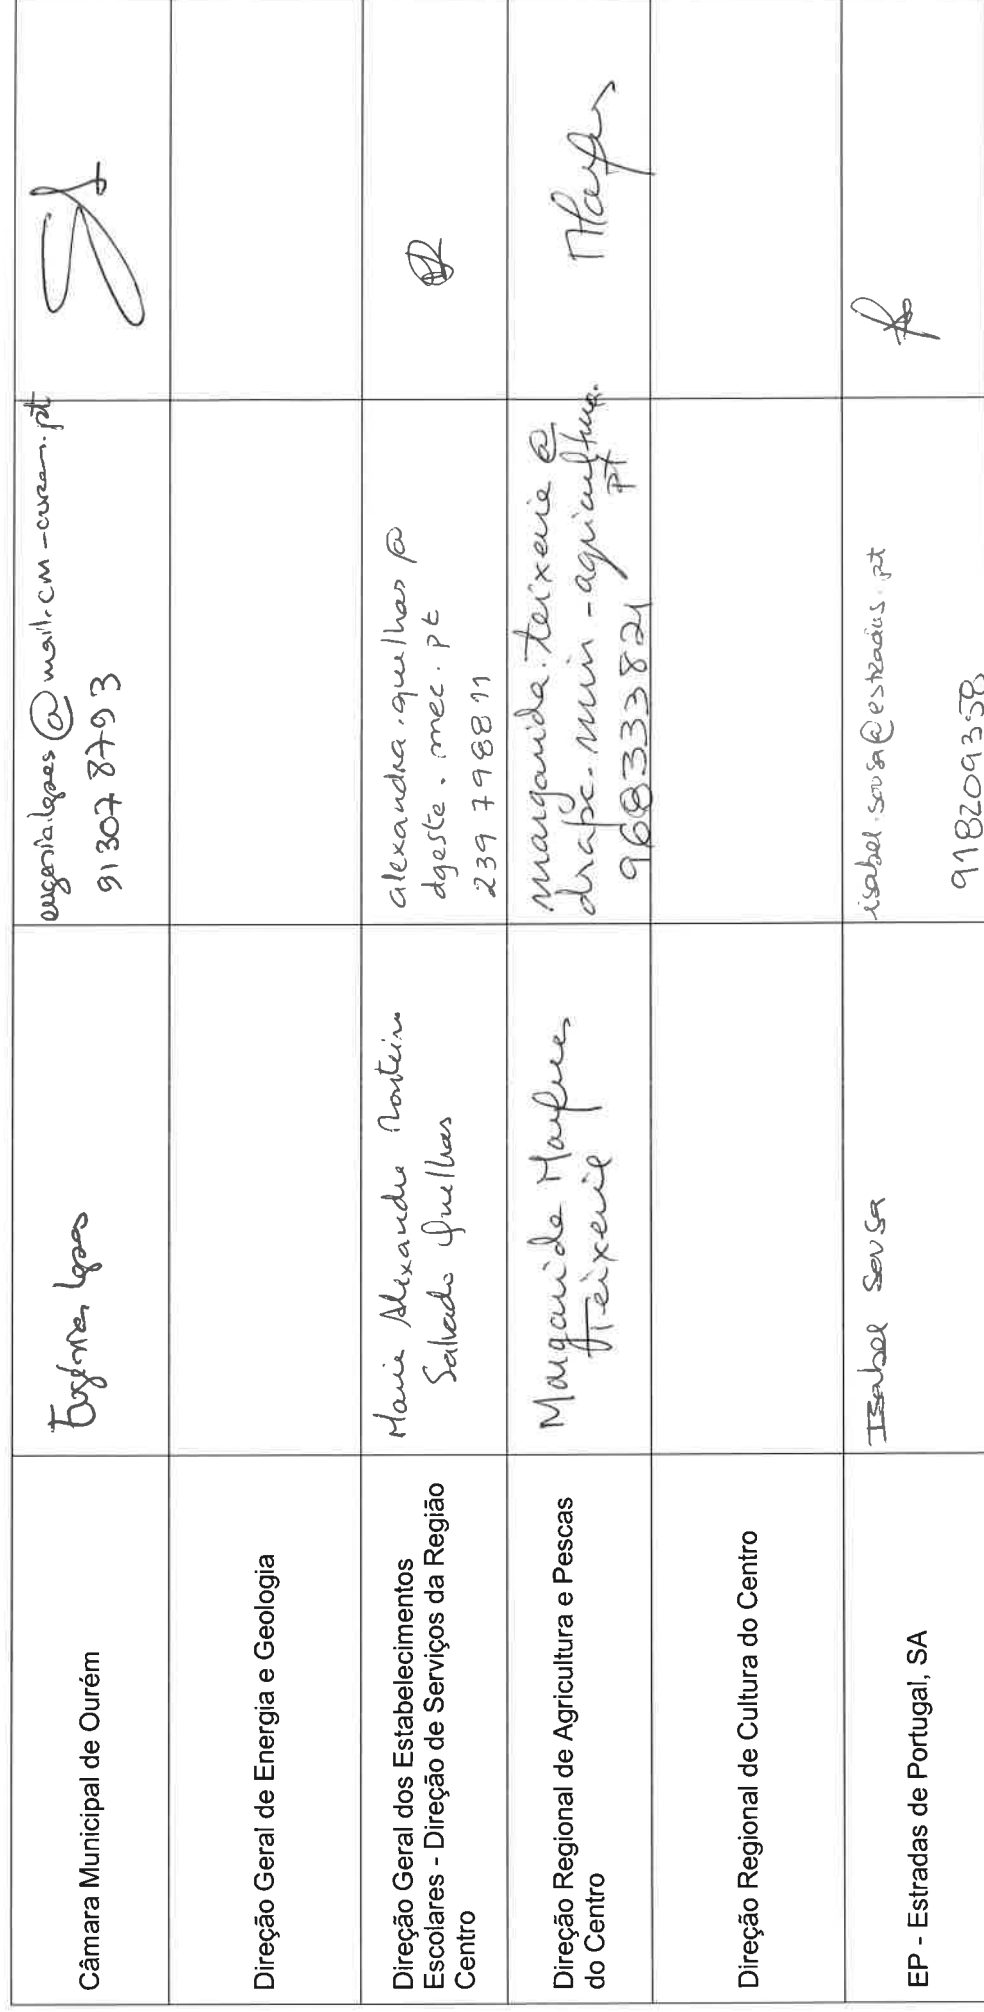 Câmara Municipal de Ourém
Eugénia Lopes
eugenia.lopes@mail.cm-ourem.pt
913078793
Direção Geral de Energia e Geologia
Direção Geral dos Estabelecimentos
Escolares - Direção de Serviços da Região
Centro
Maria Alexandra Monteiro
Salvado Quelhas
alexandra.quelhas@
dgeste.mec.pt
239798811
Direção Regional de Agricultura e Pescas
do Centro
Margarida Marques
Teixeira
margarida.teixeira@
drapc.min-agricultura.
pt
968333821
Direção Regional de Cultura do Centro
EP - Estradas de Portugal, SA
Isabel Sousa
isabel.sousa@estradas.pt
918209350